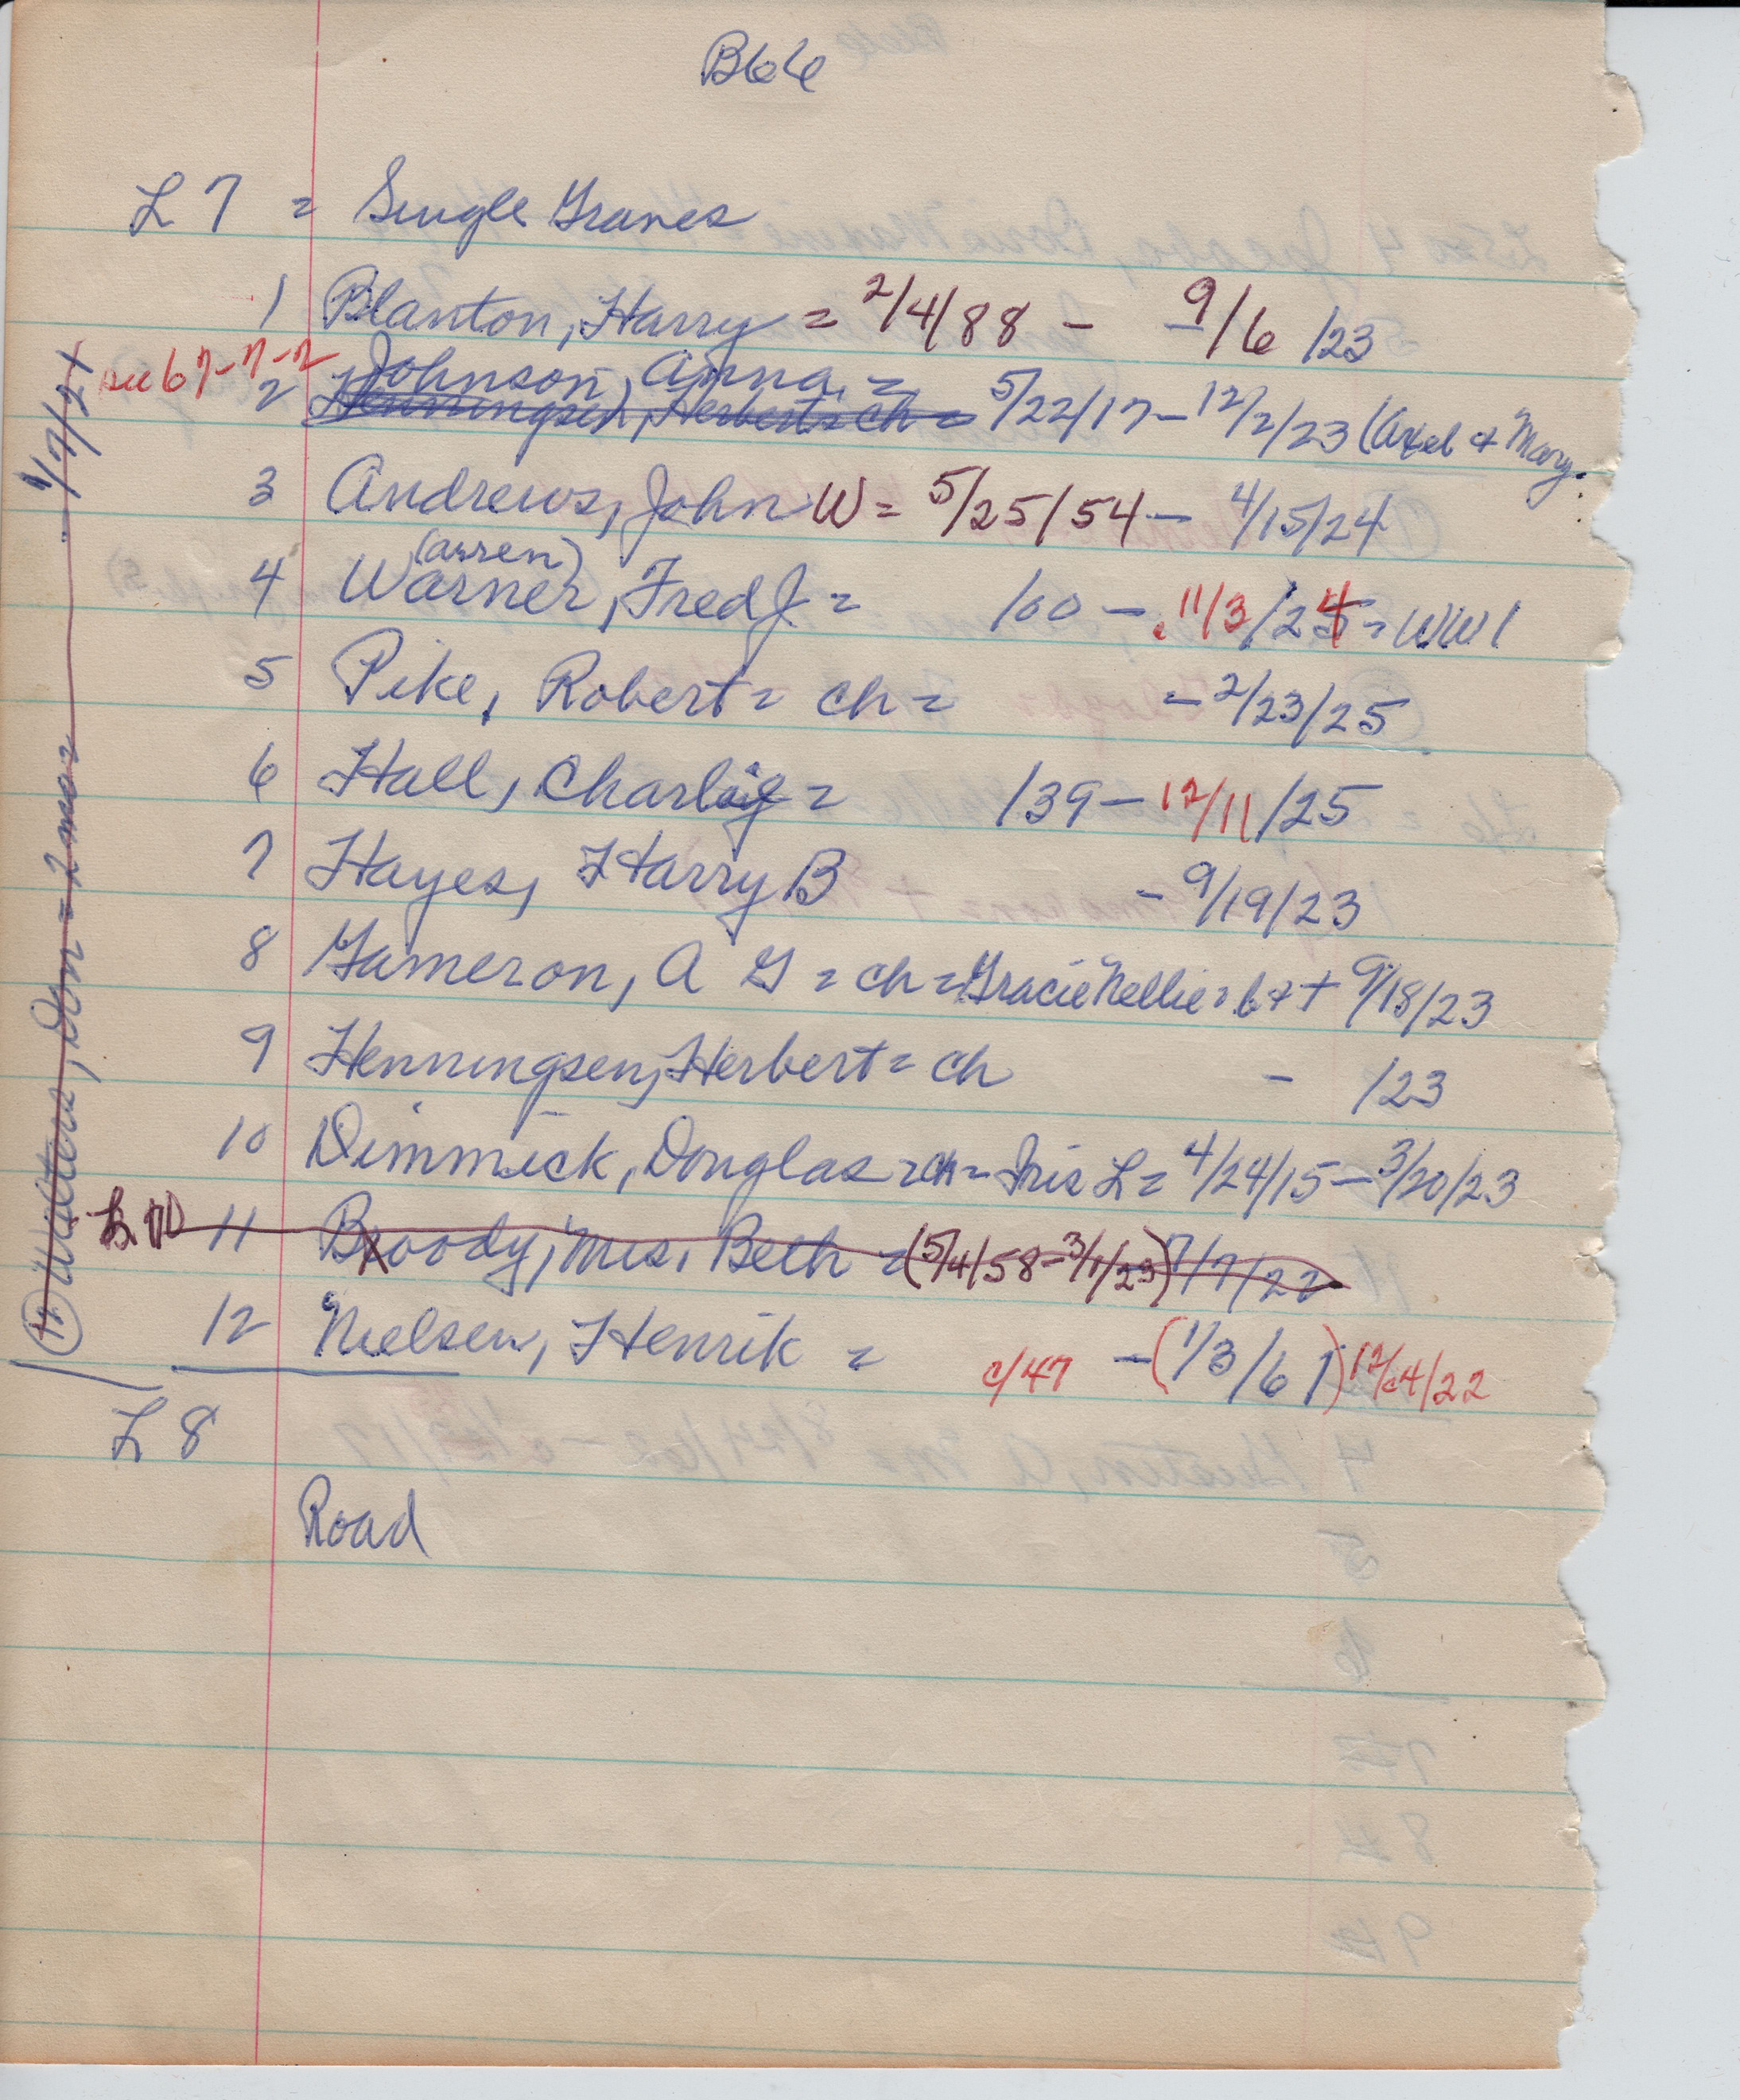 B66
L 7 = Single Graves
1 Blanton, Harry = 2/4/88 - 9/6/23
see 67-7-2
Johnson, Anna =
2 Henningsen, Herbert = ch = 5/22/17 - 12/2/23 (Axel & Mary.
3 Andrews, John W = 5/25/54 - 4/15/24
(arren)
4 Warner, Fred J = /00 - 11/3/24 = WW1
5 Pike, Robert = ch = - 2/23/25
6 Hall, Charlie = /39 - 12/11/25
7 Hayes, Harry B - 9/19/23
8 Gameron, A G = ch = Gracie Nellie = b & + 9/18/23
9 Henningsen, Herbert = ch - /23
10 Dimmick, Douglas = ch = Iris L = 4/24/15 - 3/20/23
11 Broody, Mrs. Beth = (5/4/58 - 3/1/23) 7/7/22
12 Nielsen, Henrik = c/47 - (1/3/61) 12/24/22
L 8
Road
Walters, Don = 2 mos = 1/7/21